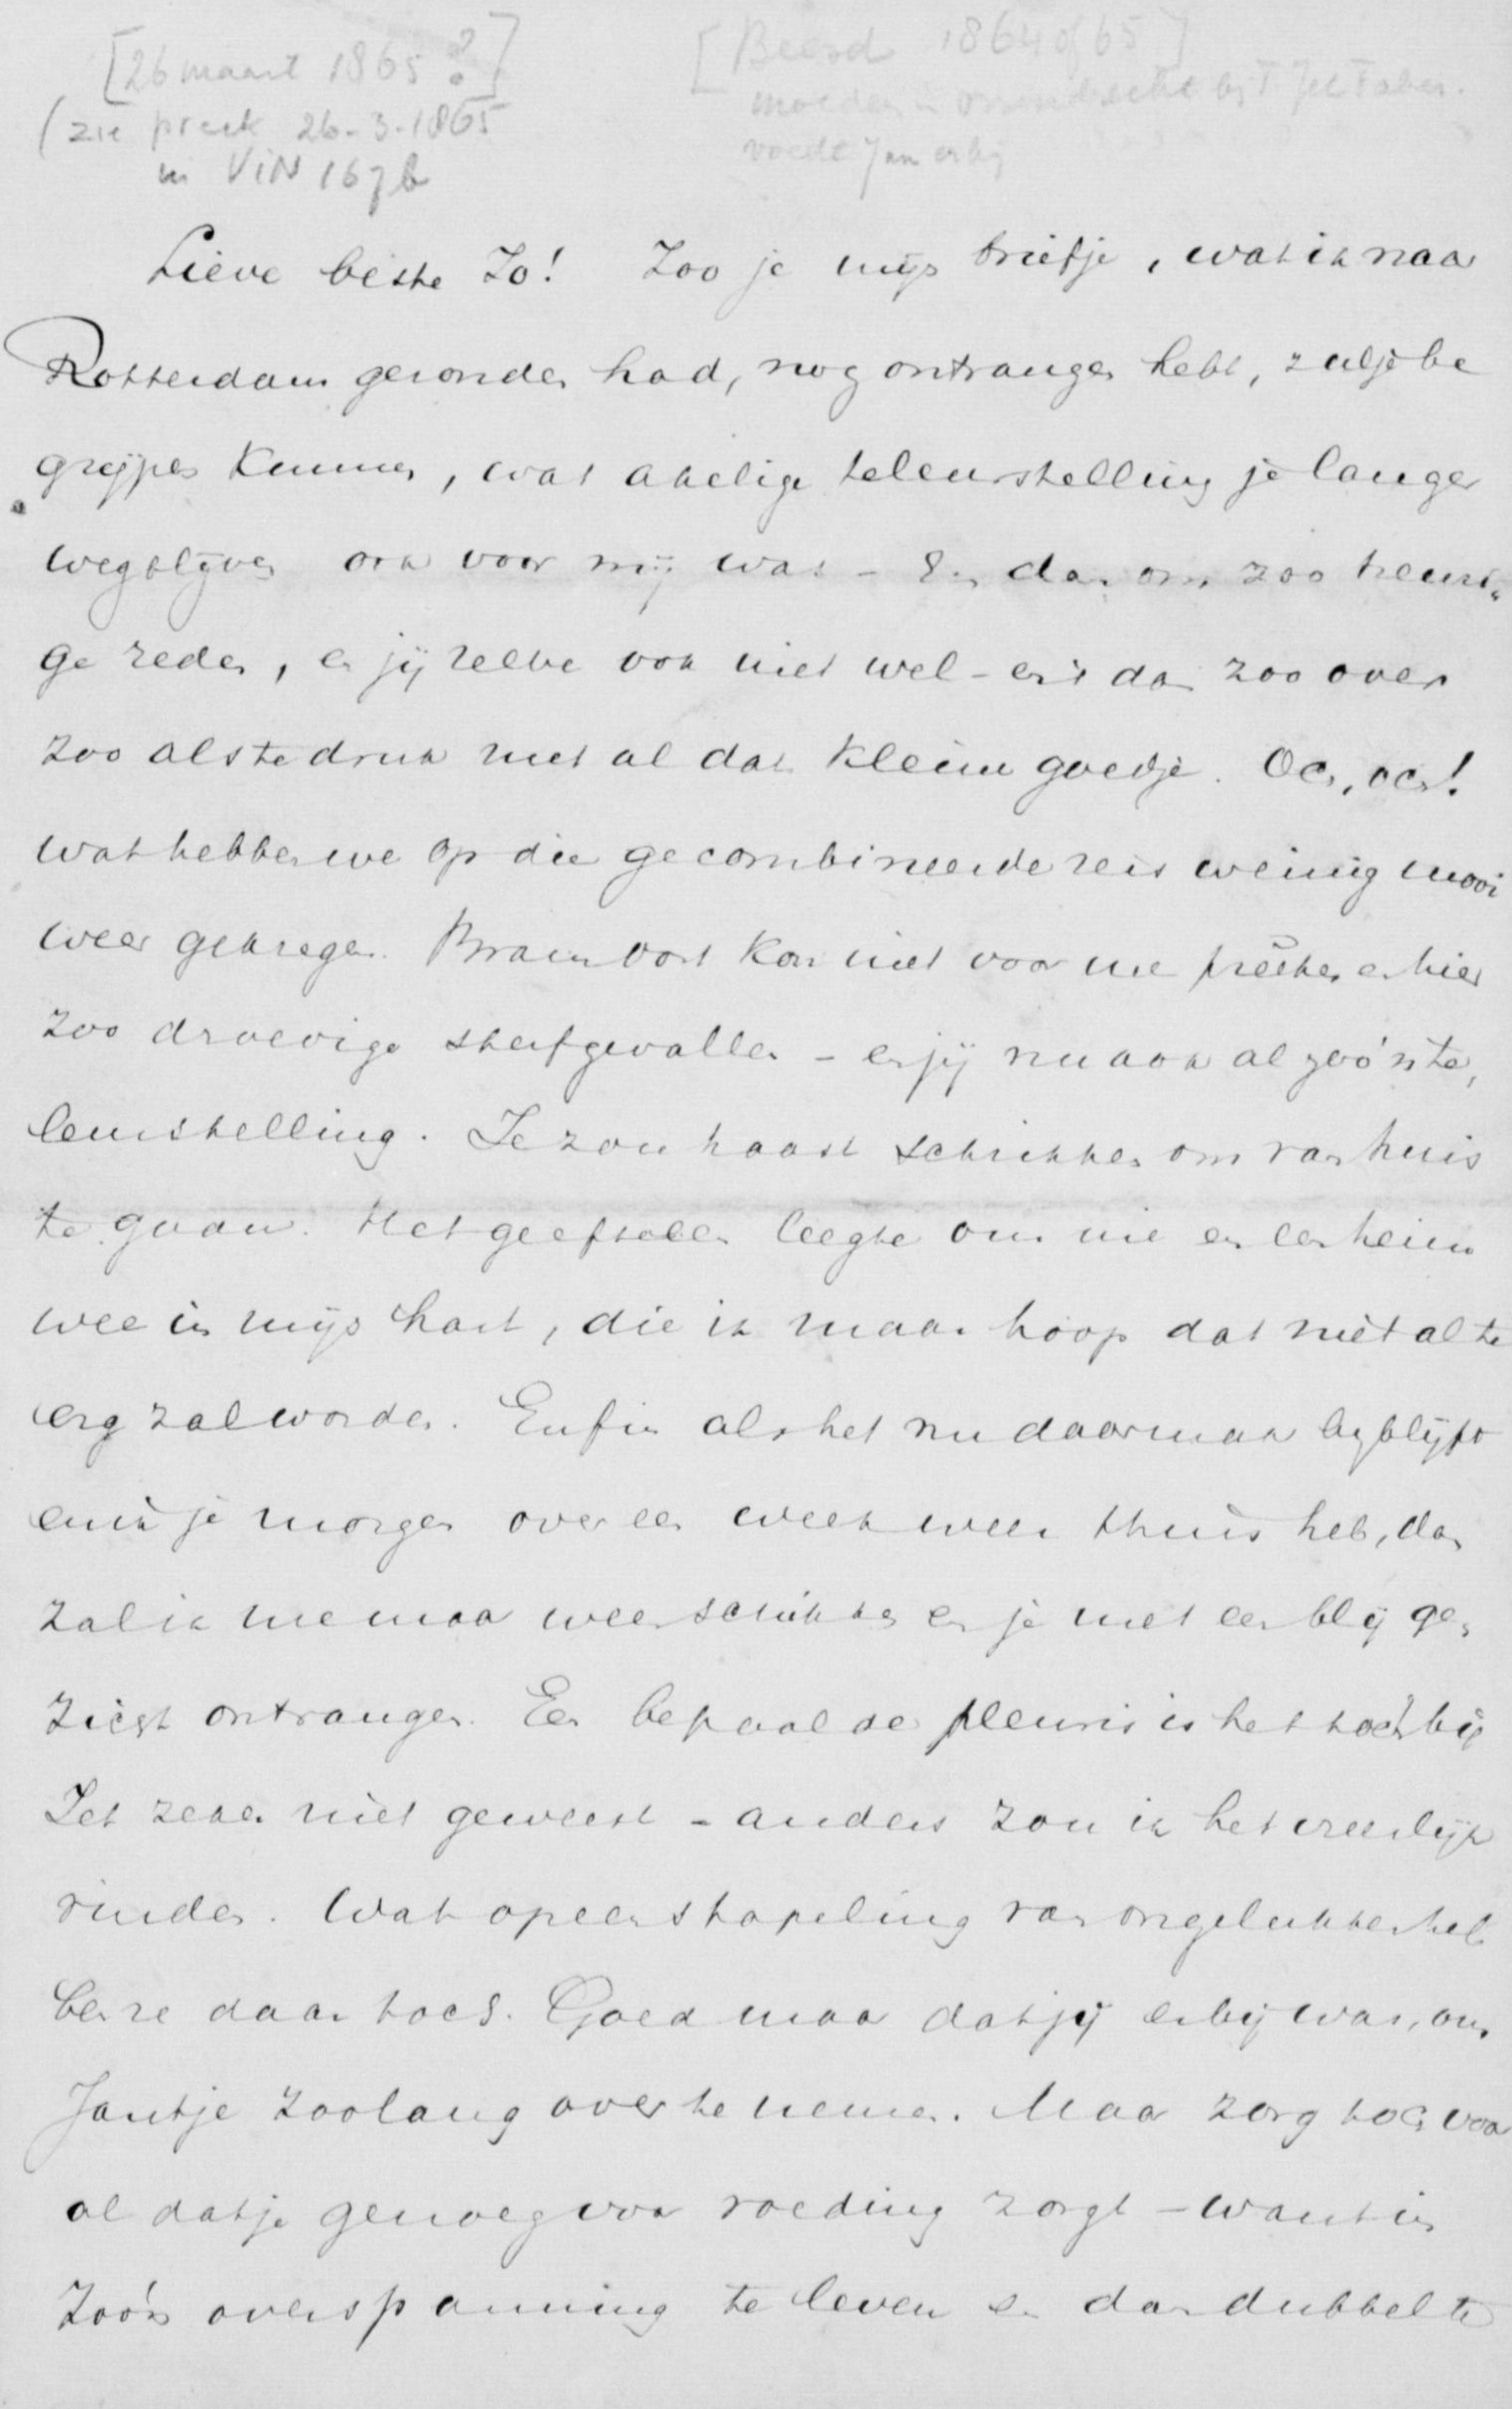 [26 maart 1865?]
(zie preek 26-3-1865
in VIN 167b
[Beesd 1864 of 65]
moeder is onverwachts bij T. Jet Faber.
voedt Jan erbij
Lieve beste Jo! Zoo je mijn briefje, wat ik naar
Rotterdam gezonden had, nog ontvangen hebt, zul je be
grijpen kunnen, wat akelige teleurstelling je langer
wegblijven ook voor mij was - En dan om zoo treuri„
ge reden, en jij zelve ook niet wel - en 't dan zoo over
zoo als te druk met al dat kleine goedje. Och, och!
wat hebben we op die gecombineerde reis weinig mooi
weer gekregen. Bram vost kon niet voor me preeken en hier
zoo droevige sterfgevallen - en jij nu ook al zoo'n te„
leurstelling. Je zou haast schrikken om van huis
te gaan. Het geeft een leegte om me en een heim
wee in mijn hart, die ik maar hoop dat niet al te
erg zal worden. Enfin als het nu daar maar bij blijft
en ik je morgen over een week weer thuis heb, dan
zal ik me maar weer schikken en je met een blij ge„
zicht ontvangen. Een bepaalde pleuris is het toch bij
Jet zeker niet geweest - anders zou ik het vreeslijk
vinden. Wat opeenstapeling van ongelukken heb
ben ze daar toch. Goed maar dat jij er bij was, om
Jantje zoolang over te nemen. Maar zorg toch voor
al dat je genoeg voor voeding zorgt - want in
zoo'n overspanning te leven en dan dubbel te